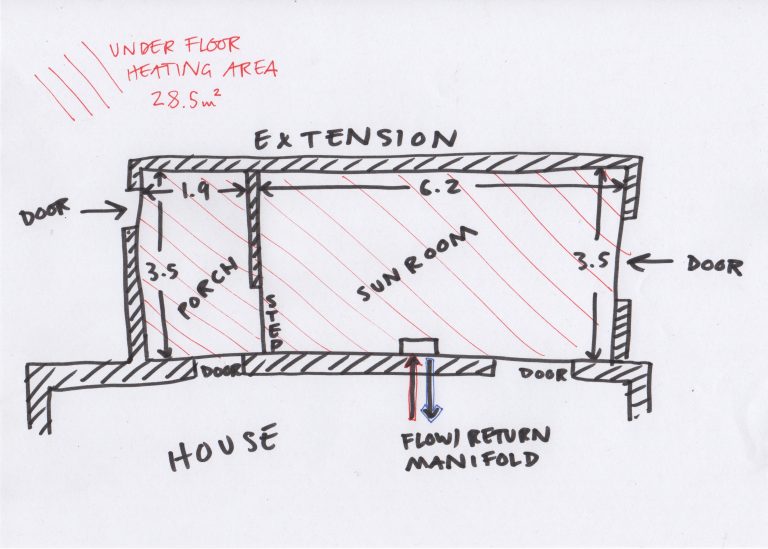 UNDER FLOOR
HEATING AREA
28.5m²
EXTENSION
1.9
6.2
DOOR
3.5
PORCH
SUNROOM
3.5
DOOR
STEP
DOOR
DOOR
HOUSE
FLOW/RETURN
MANIFOLD